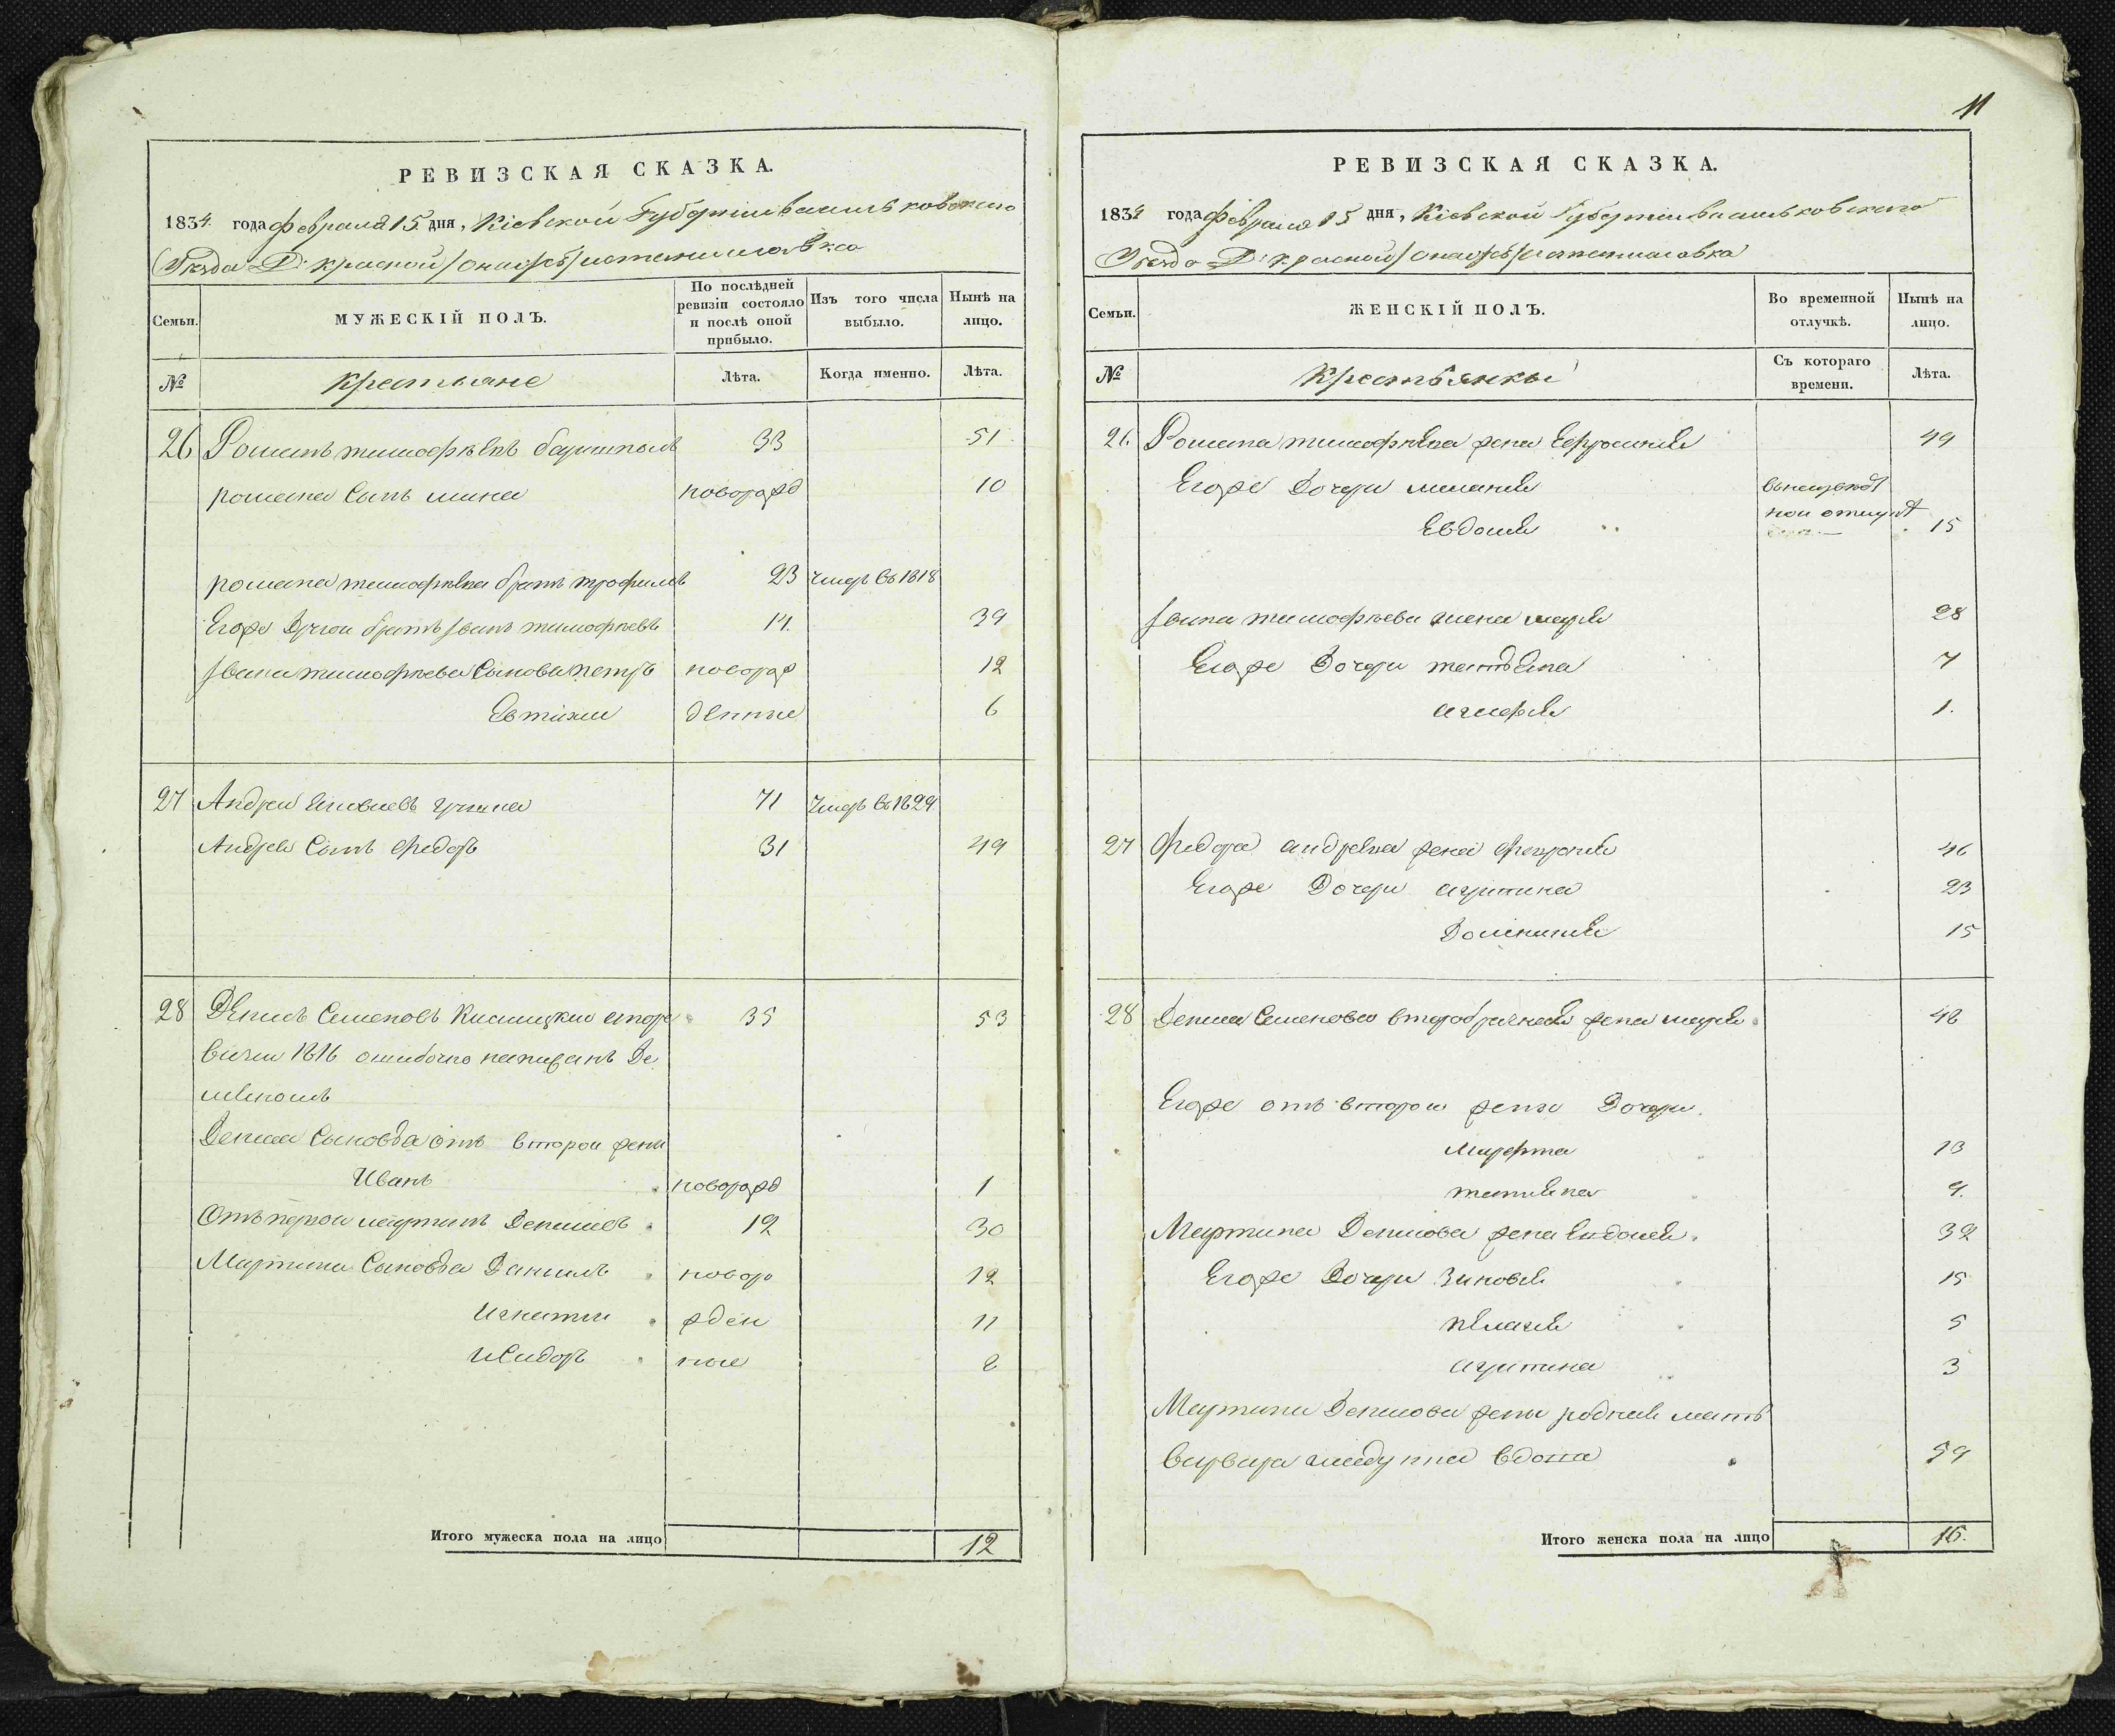 РЕВИЗСКАЯ СКАЗКА.
1834 года февраля 15 дня, Кіевской Губерніи васильковского
Уезда Д: красной
Семьи.
МУЖЕСКІЙ ПОЛЪ.
По послѣдней ревизіи состояло и послѣ оной прибыло.
Изъ того числа выбыло.
Нынѣ на лицо.
№
крестьяне
Лѣта.
Когда именно.
Лѣта.
26 Романъ тимофѣевъ 33 51
романа Сынъ мина новорожд 10
романа тимофѣева братъ трофимъ 23 умеръ въ 1818
Егоже Другой братъ иванъ тимофеевъ 14. 39
ивана тимофеева Сынови петръ поворож 12
Евтихии денные 6
27 Андреи 71 умеръ въ 1829
Андрея Сынъ Федоръ 31 49
28 Денисъ Семеновъ 35 53
1816 ошибочно написанъ Де
меномъ
Дениса Сыновья отъ второй жены
Иванъ новорожд 1
Отъ первой мартинъ Денисовъ 12 30
Мартина Сыновья Данило новоро 12
Игнатии жден 11
Исидоръ ные 2
Итого мужеска пола на лицо 12
11
РЕВИЗСКАЯ СКАЗКА.
1834 года февраля 15 дня, Кіевской Губерніи васильковского
Уезда Д: красной
Семьи.
ЖЕНСКІЙ ПОЛЪ.
Во временной отлучкѣ.
Нынѣ на лицо.
№
Крестьянкы
Съ котораго времени.
Лѣта.
26. Романа тимофѣева жена Ефросинія 49
Егоже Дочери меланія
Евдокія 15
ивана тимофѣева жена марія 28
Егоже Дочери татьяна 7
агафія 1.
27 Федора андреева жена 46
Егоже Дочери 23
Домникия 15
28 Дениса Семенова второбрачная жена марія 48
Егоже отъ второй жены Дочери.
Марфта 13
татияна 9.
Мартина Денисова жена Евдокія 32
Егоже Дочери Зиновія 15
пелагія 5
3
Мартина Денисова жены родная мать
варвара вдова 59
Итого женска пола на лицо 16.